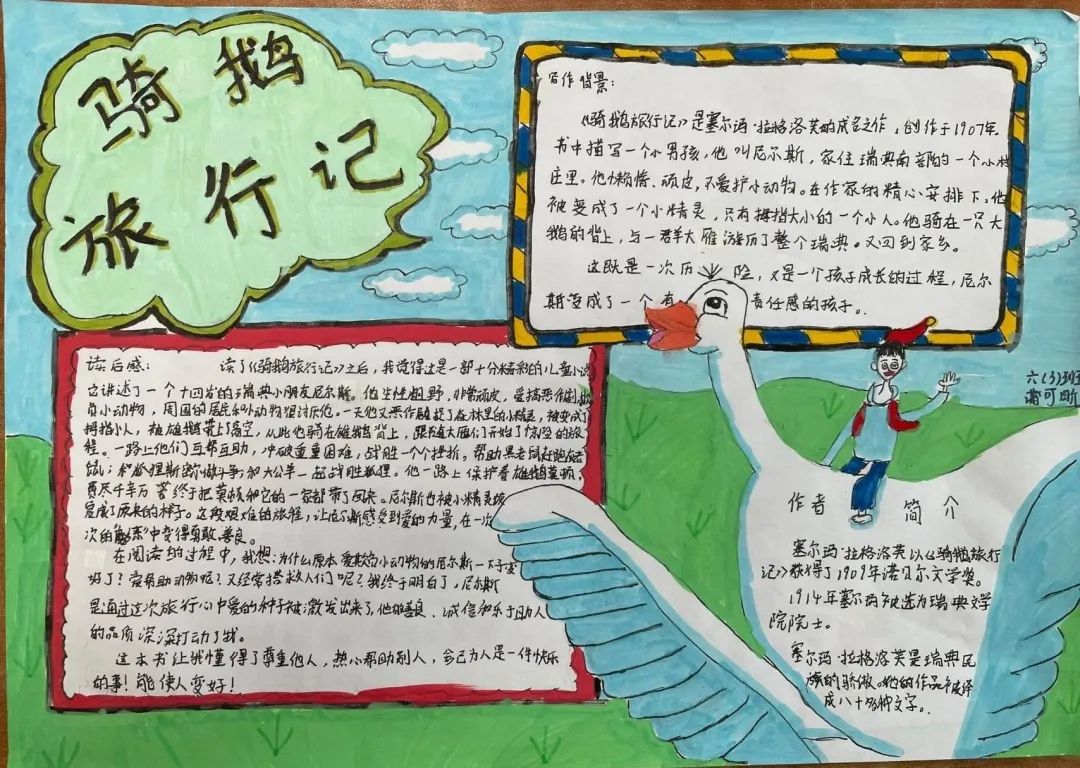 骑鹅
旅行记
写作背景:
《骑鹅旅行记》是塞尔玛·拉格洛芙的成名之作,创作于1907年。
书中描写一个小男孩,他叫尼尔斯,家住瑞典南部的一个小村
庄里。他懒惰、顽皮,不爱护小动物。在作家的精心安排下,他
被变成了一个小精灵,只有拇指大小的一个小人。他骑在一只大
鹅的背上,与一群大雁游历了整个瑞典。又回到家乡。
这既是一次历险,又是一个孩子成长的过程,尼尔
斯变成了一个有责任感的孩子。
读后感:读了《骑鹅旅行记》之后,我觉得这是一部十分精彩的儿童小说
它讲述了一个十四岁的瑞典小朋友尼尔斯。他生性粗野,非常顽皮,爱搞恶作剧
负小动物,周围的居民和动物很讨厌他。一天他又恶作剧捉了森林里的小精灵,被变成了
拇指小人,被雄鹅带上高空,从此他骑在雄鹅背上,跟随大雁们开始了惊险的旅
程。一路上他们互帮互助,冲破重重困难,战胜一个个挫折。帮助黑老鼠
和狐狸斯密尔做斗争;和大公羊一起战胜狐狸。他一路上保护着雄鹅莫顿,
费尽千辛万苦终于把莫顿和它的一家都带了回来。尼尔斯也被小精灵
变成了原来的样子。这段艰难的旅程,让尼尔斯感受到爱的力量,在一次
次的中变得勇敢、善良。
在阅读的过程中,我想:为什么原本爱欺负小动物的尼尔斯一下子变
好了?爱帮助动物呢?又经常搭救人们呢?我终于明白了,尼尔斯
是通过这次旅行心中爱的种子被激发出来了,他的善良、诚信和乐于助人
的品质深深打动了我。
这本书让我懂得了尊重他人,热心帮助别人,舍己为人是一件快乐
的事!能使人变好!
六(3)班
可昕
作者简介
塞尔玛·拉格洛芙以《骑鹅旅行
记》获得了1909年诺贝尔文学奖。
1914年塞尔玛被选为瑞典文学
院院士。
塞尔玛·拉格洛芙是瑞典民
族的骄傲。她的作品被译
成八十多种文字。